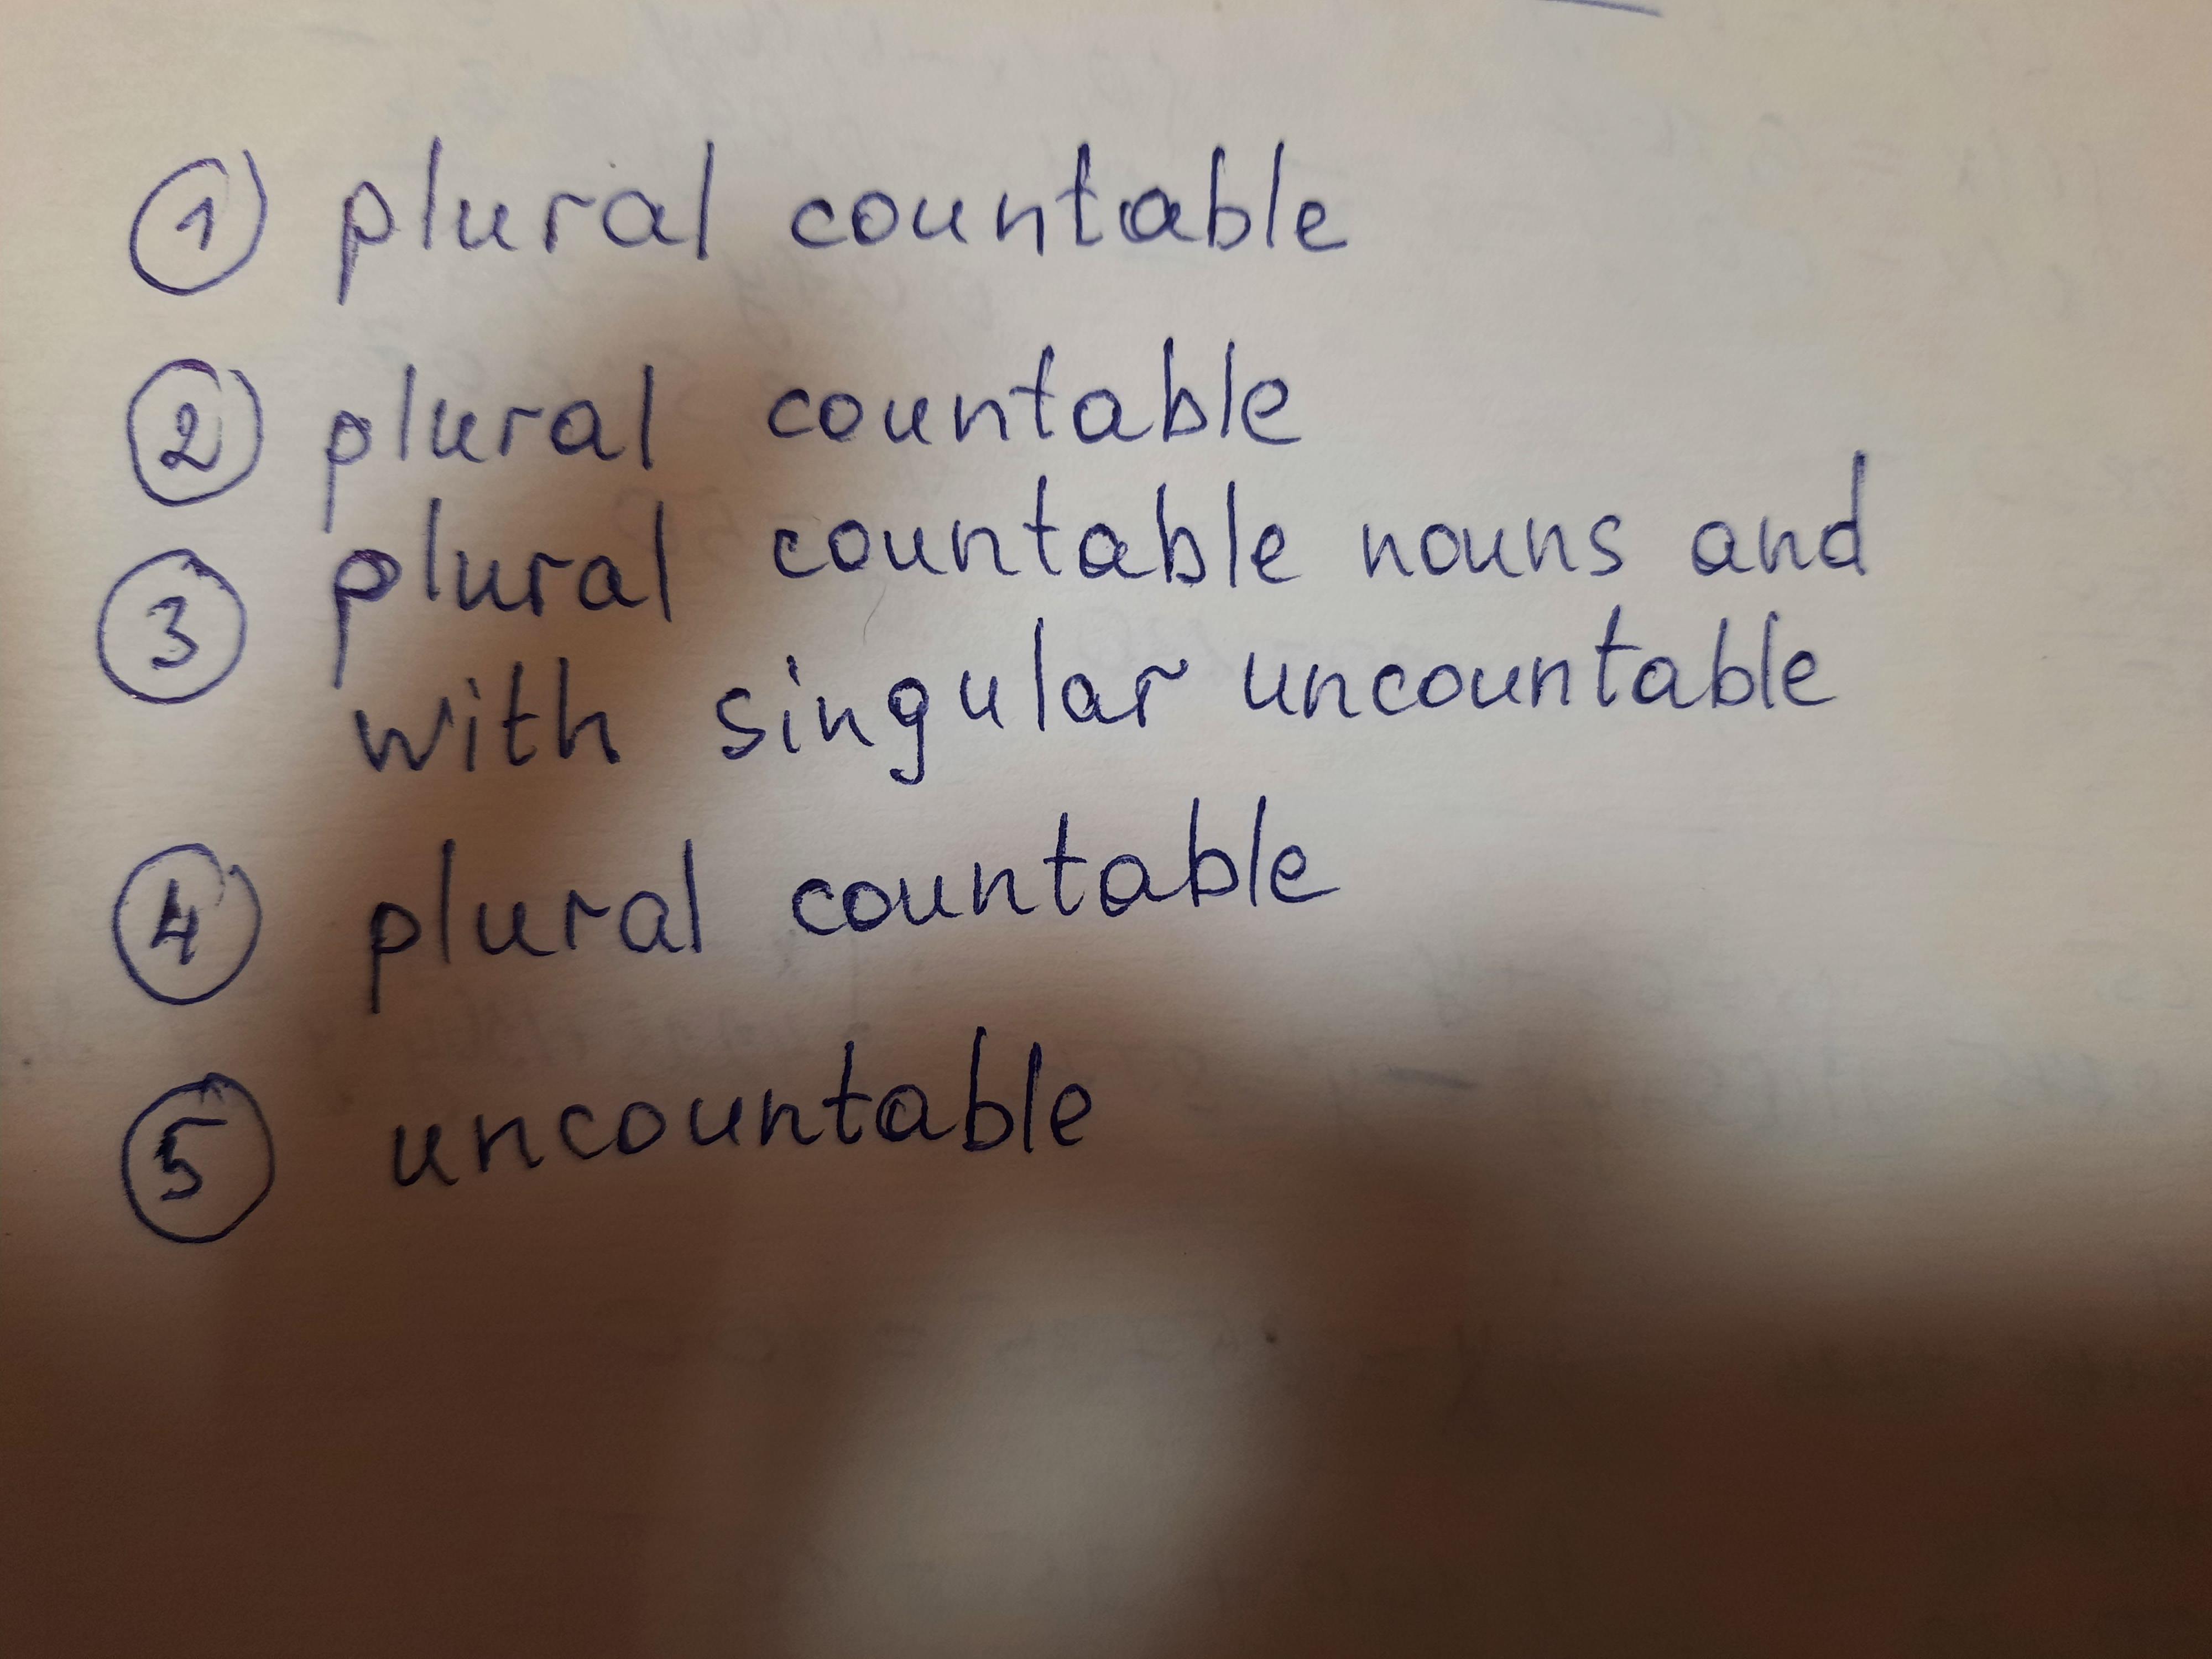 1 plural countable
2 plural countable
3 plural countable nouns and
with singular uncountable
4 plural countable
5 uncountable